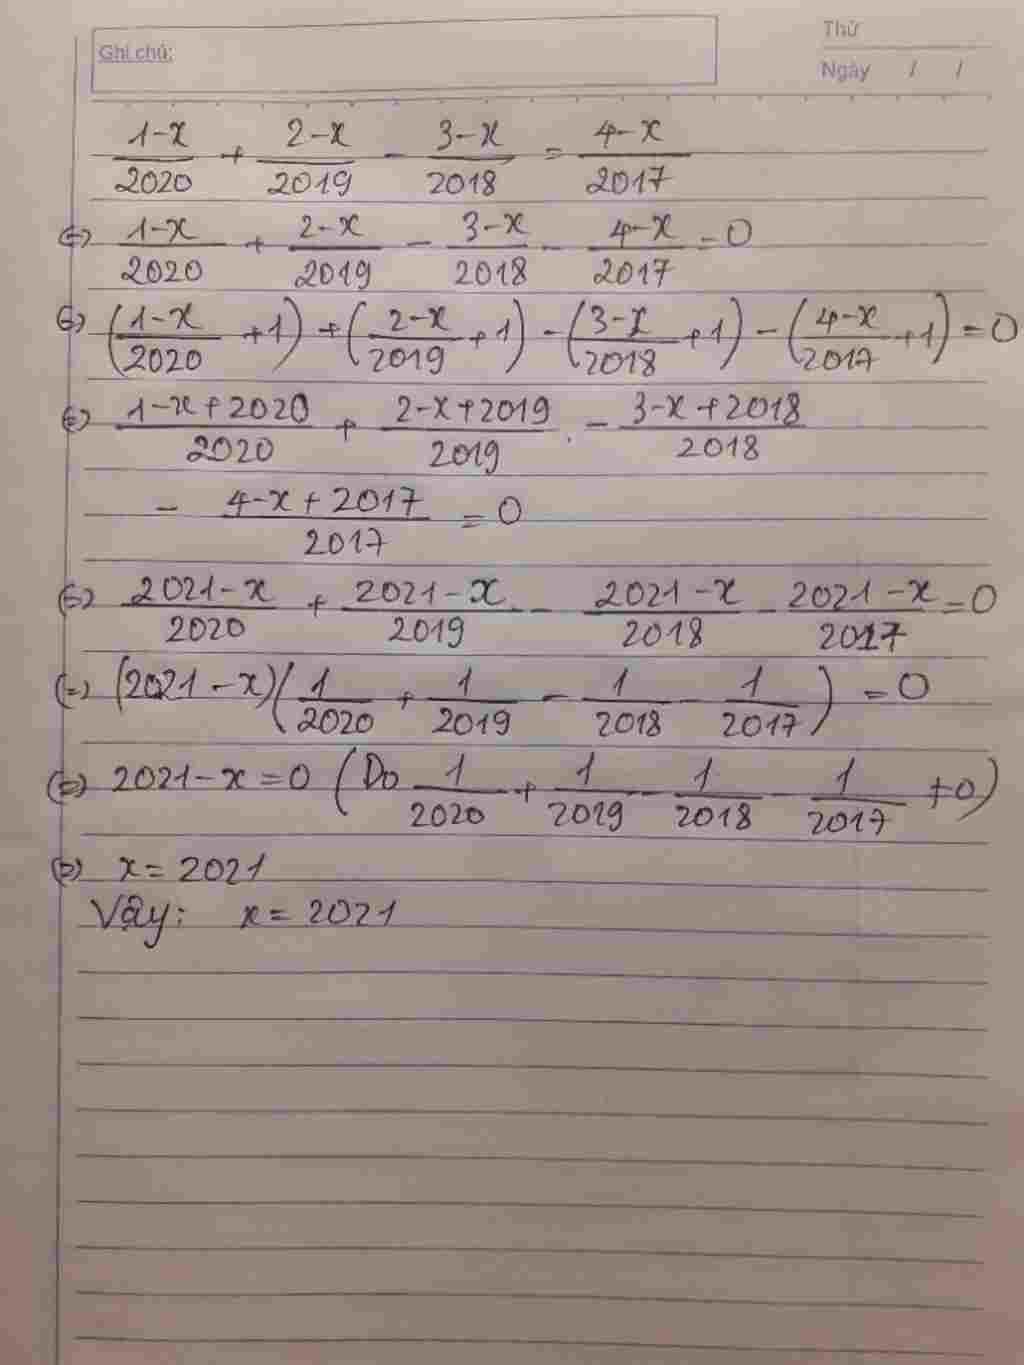 Ghi chú:
Thứ
Ngày / /
(1-x)/2020 + (2-x)/2019 - (3-x)/2018 = (4-x)/2017
(=) (1-x)/2020 + (2-x)/2019 - (3-x)/2018 - (4-x)/2017 = 0
(=) ((1-x)/2020 + 1) + ((2-x)/2019 + 1) - ((3-x)/2018 + 1) - ((4-x)/2017 + 1) = 0
(=) (1-x+2020)/2020 + (2-x+2019)/2019 . - (3-x+2018)/2018
- (4-x+2017)/2017 = 0
(=) (2021-x)/2020 + (2021-x)/2019 - (2021-x)/2018 - (2021-x)/2017 = 0
(=) (2021-x)(1/2020 + 1/2019 - 1/2018 - 1/2017) = 0
(=) 2021-x = 0 (Do 1/2020 + 1/2019 - 1/2018 - 1/2017 ≠ 0)
(=) x = 2021
Vậy: x = 2021